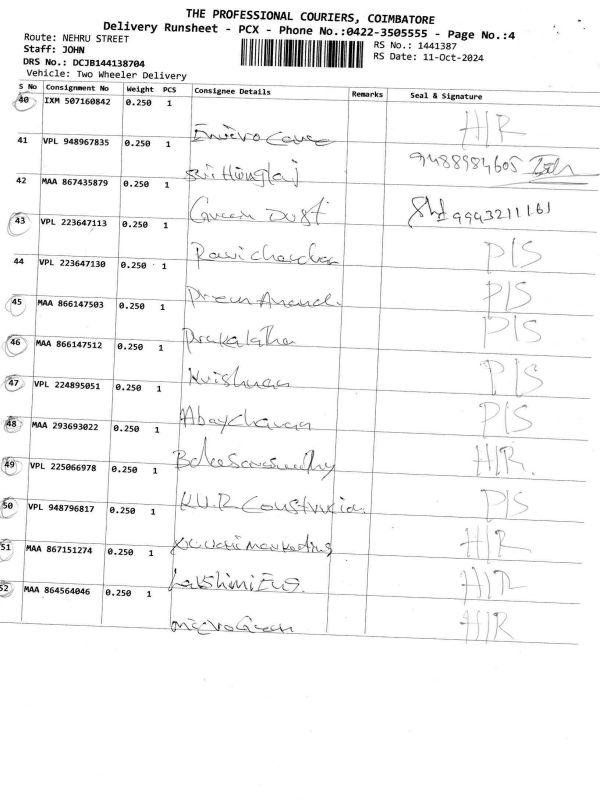 THE PROFESSIONAL COURIERS, COIMBATORE
Delivery Runsheet - PCX - Phone No.:0422-3505555 - Page No.:4
Route: NEHRU STREET
RS No.: 1441387
Staff: JOHN
RS Date: 11-Oct-2024
DRS No.: DCJB144138704
Vehicle: Two Wheeler Delivery
S No Consignment No Weight PCS Consignee Details Remarks Seal & Signature
40 IXM 507160842 0.250 1 H/R
41 VPL 948967835 0.250 1 9488984605
42 MAA 867435879 0.250 1 Green Dust 9943211161
43 VPL 223647113 0.250 1 Ravichandran P/S
44 VPL 223647130 0.250 1 Prem Anand. P/S
45 MAA 866147503 0.250 1 Prakalatha P/S
46 MAA 866147512 0.250 1 P/S
47 VPL 224895051 0.250 1 Abaycharan P/S
48 MAA 293693022 0.250 1 H/R.
49 VPL 225066978 0.250 1 K.U.R Construction. P/S
50 VPL 948796817 0.250 1 marketing H/R
51 MAA 867151274 0.250 1 Lakshimi H/R
52 MAA 864564046 0.250 1 micro Green H/R